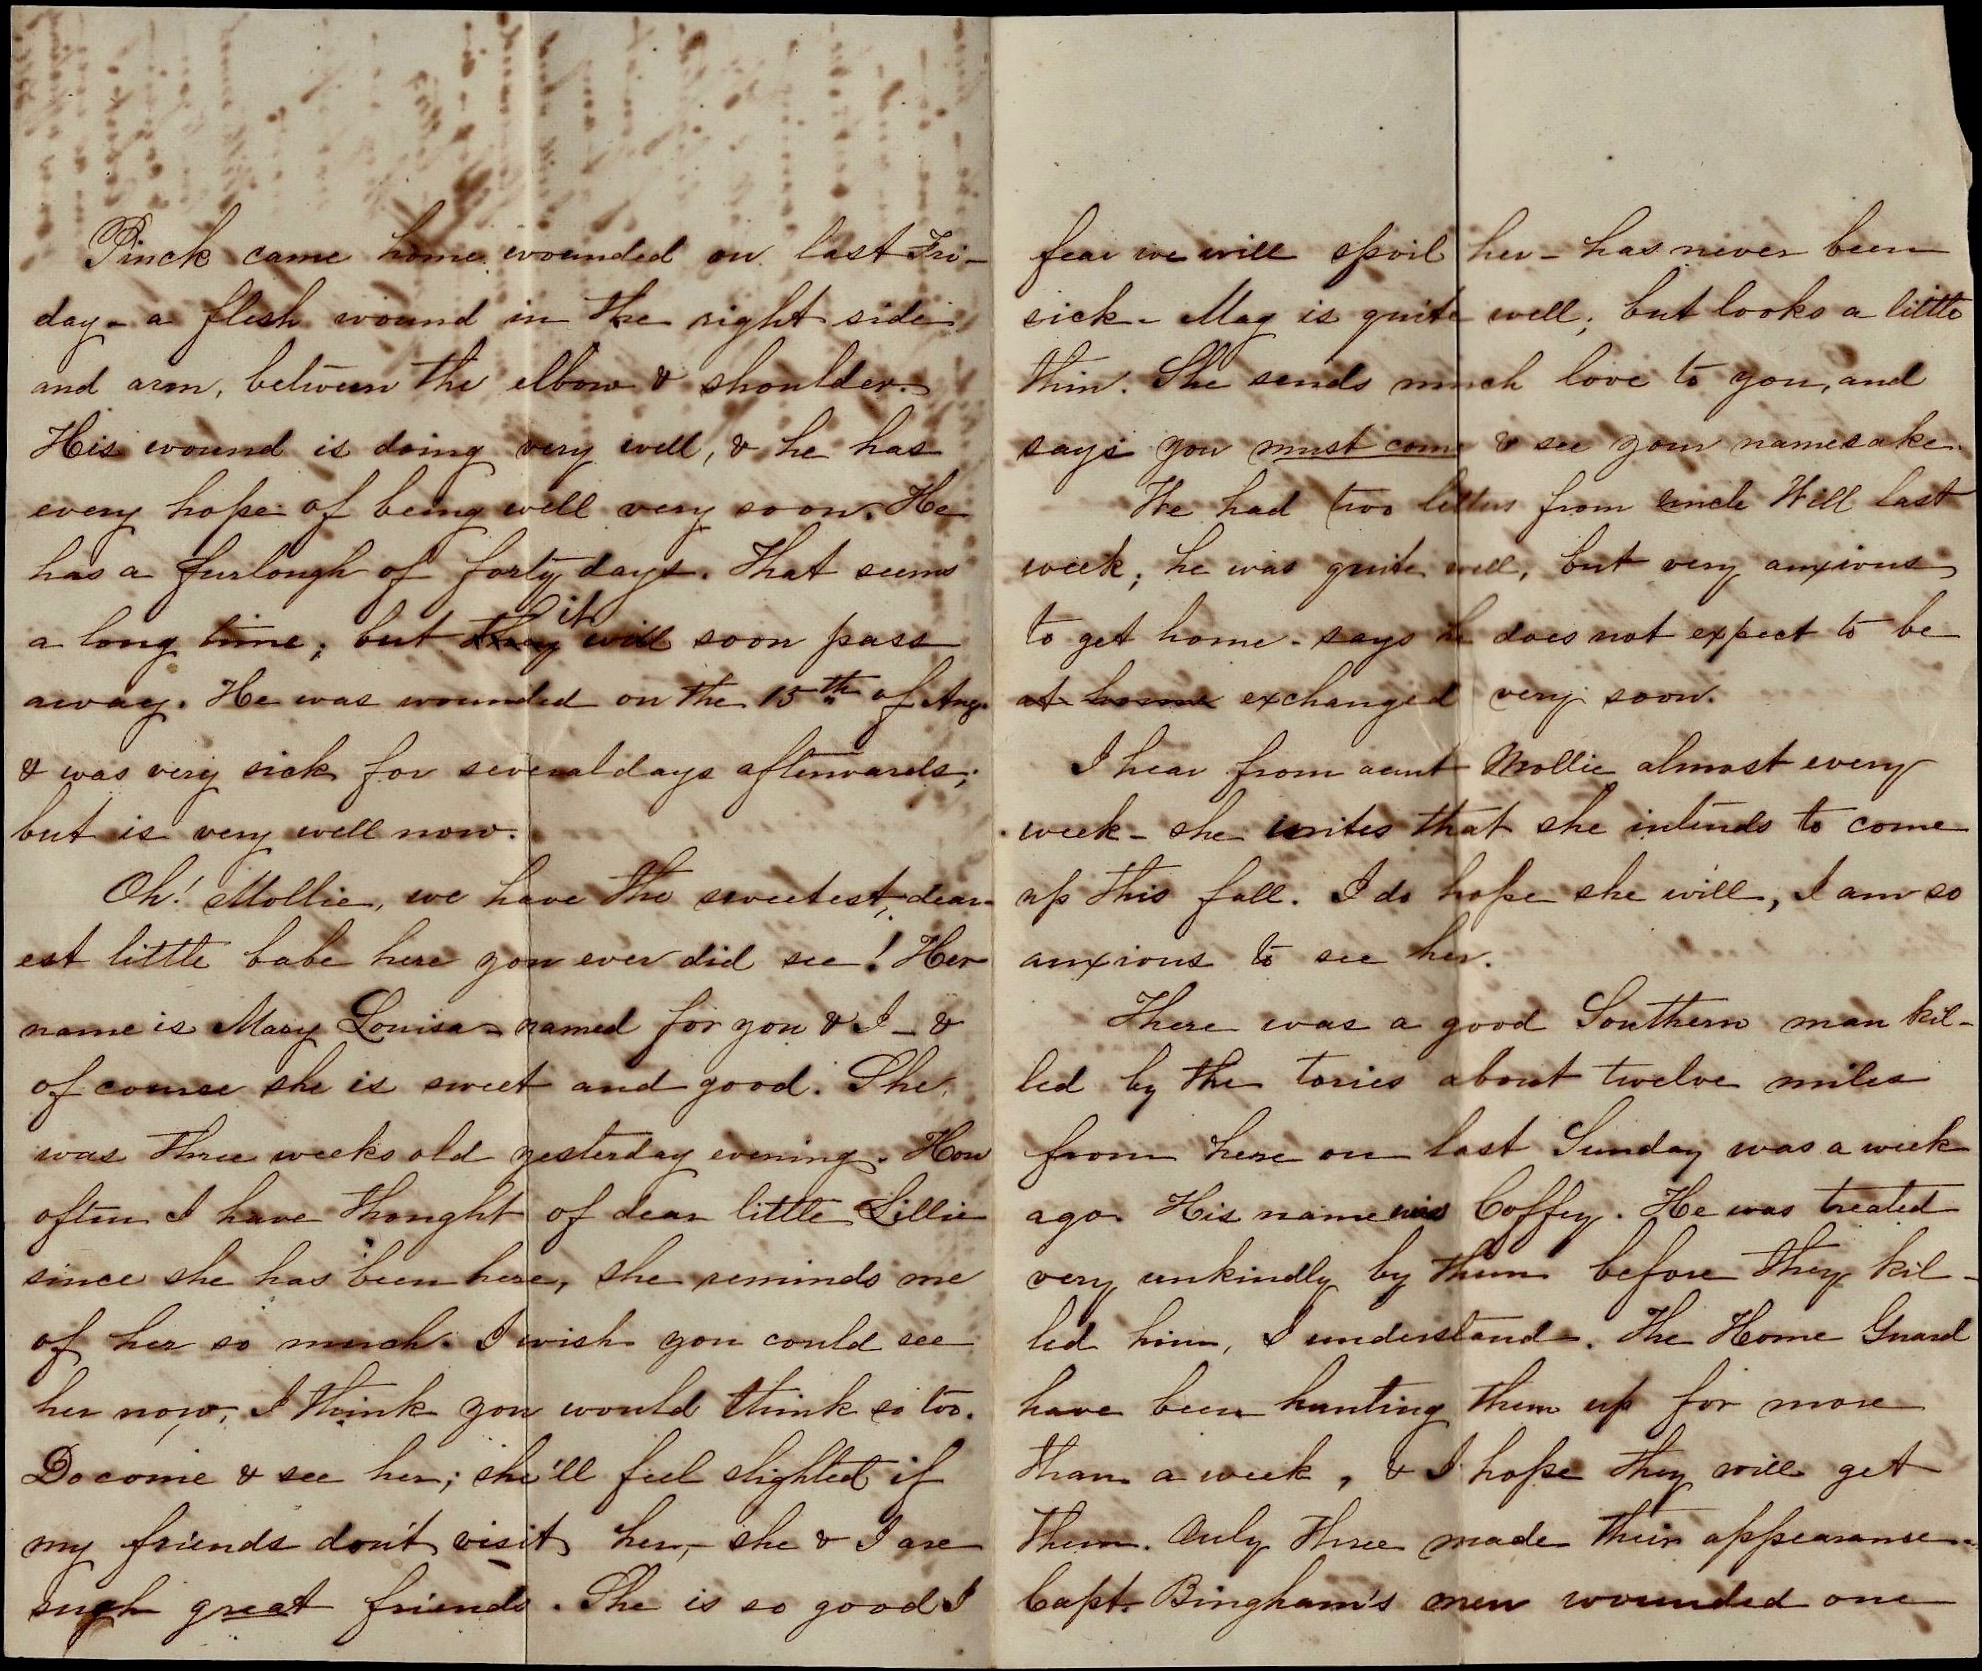 Pinck came home wounded on last Fri-
day - a flesh wound in the right side
and arm, between the elbow & shoulder.
His wound is doing very well, & he has
every hope of being well very soon. He
has a furlough of forty days. That seems
a long time; but they it will soon pass
away. He was wounded on the 15th of Aug.
& was very sick for several days afterwards;
but is very well now.
Oh! Mollie, we have the sweetest, dear-
est little babe here you ever did see! Her
name is Mary Louisa - named for you & I - &
of course she is sweet and good. She
was three weeks old yesterday evening. How
often I have thought of dear little Lillie
since she has been here, she reminds me
of her so much. I wish you could see
her now, I think you would think so too.
Do come & see her; she'll feel slighted if
my friends don't visit her, - she & I are
such great friends. She is so good I
fear we will spoil her - has never been
sick - Mag is quite well; but looks a little
thin. She sends much love to you, and
says you must come & see your namesake.
We had two letters from uncle Will last
week; he was quite well, but very anxious
to get home - says he does not expect to be
at home exchanged very soon.
I hear from aunt Mollie almost every
week - she writes that she intends to come
up this fall. I do hope she will, I am so
anxious to see her.
There was a good Southern man kil-
led by the tories about twelve miles
from here on last Sunday was a week
ago. His name was Coffey. He was treated
very unkindly by them before they kil-
led him, I understand. The Home Guard
have been hunting them up for more
than a week, & I hope they will get
them. Only three made their appearance.
Capt. Bingham's men wounded one